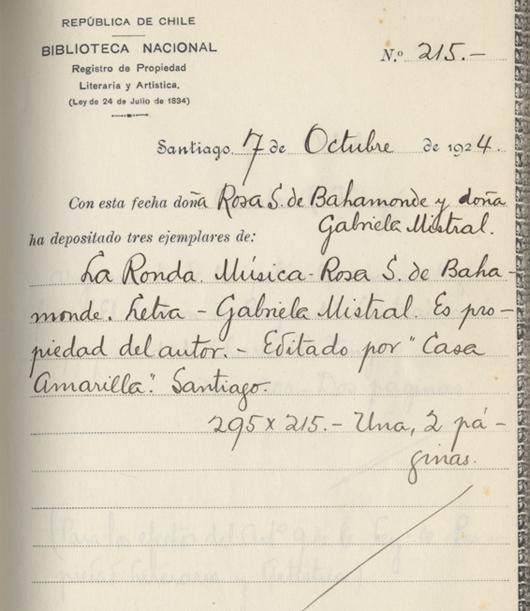 REPÚBLICA DE CHILE
BIBLIOTECA NACIONAL
Registro de Propiedad
Literaria y Artística.
(Ley de 24 de Julio de 1834)
N.º 215.-
Santiago, 7 de Octubre de 1924.
Con esta fecha doña Rosa S. de Bahamonde y doña
Gabriela Mistral.
ha depositado tres ejemplares de:
La Ronda. Música - Rosa S. de Baha-
monde. Letra - Gabriela Mistral. Es pro-
piedad del autor. - Editado por "Casa
Amarilla". Santiago.
295 x 215.- Una, 2 pá-
ginas.